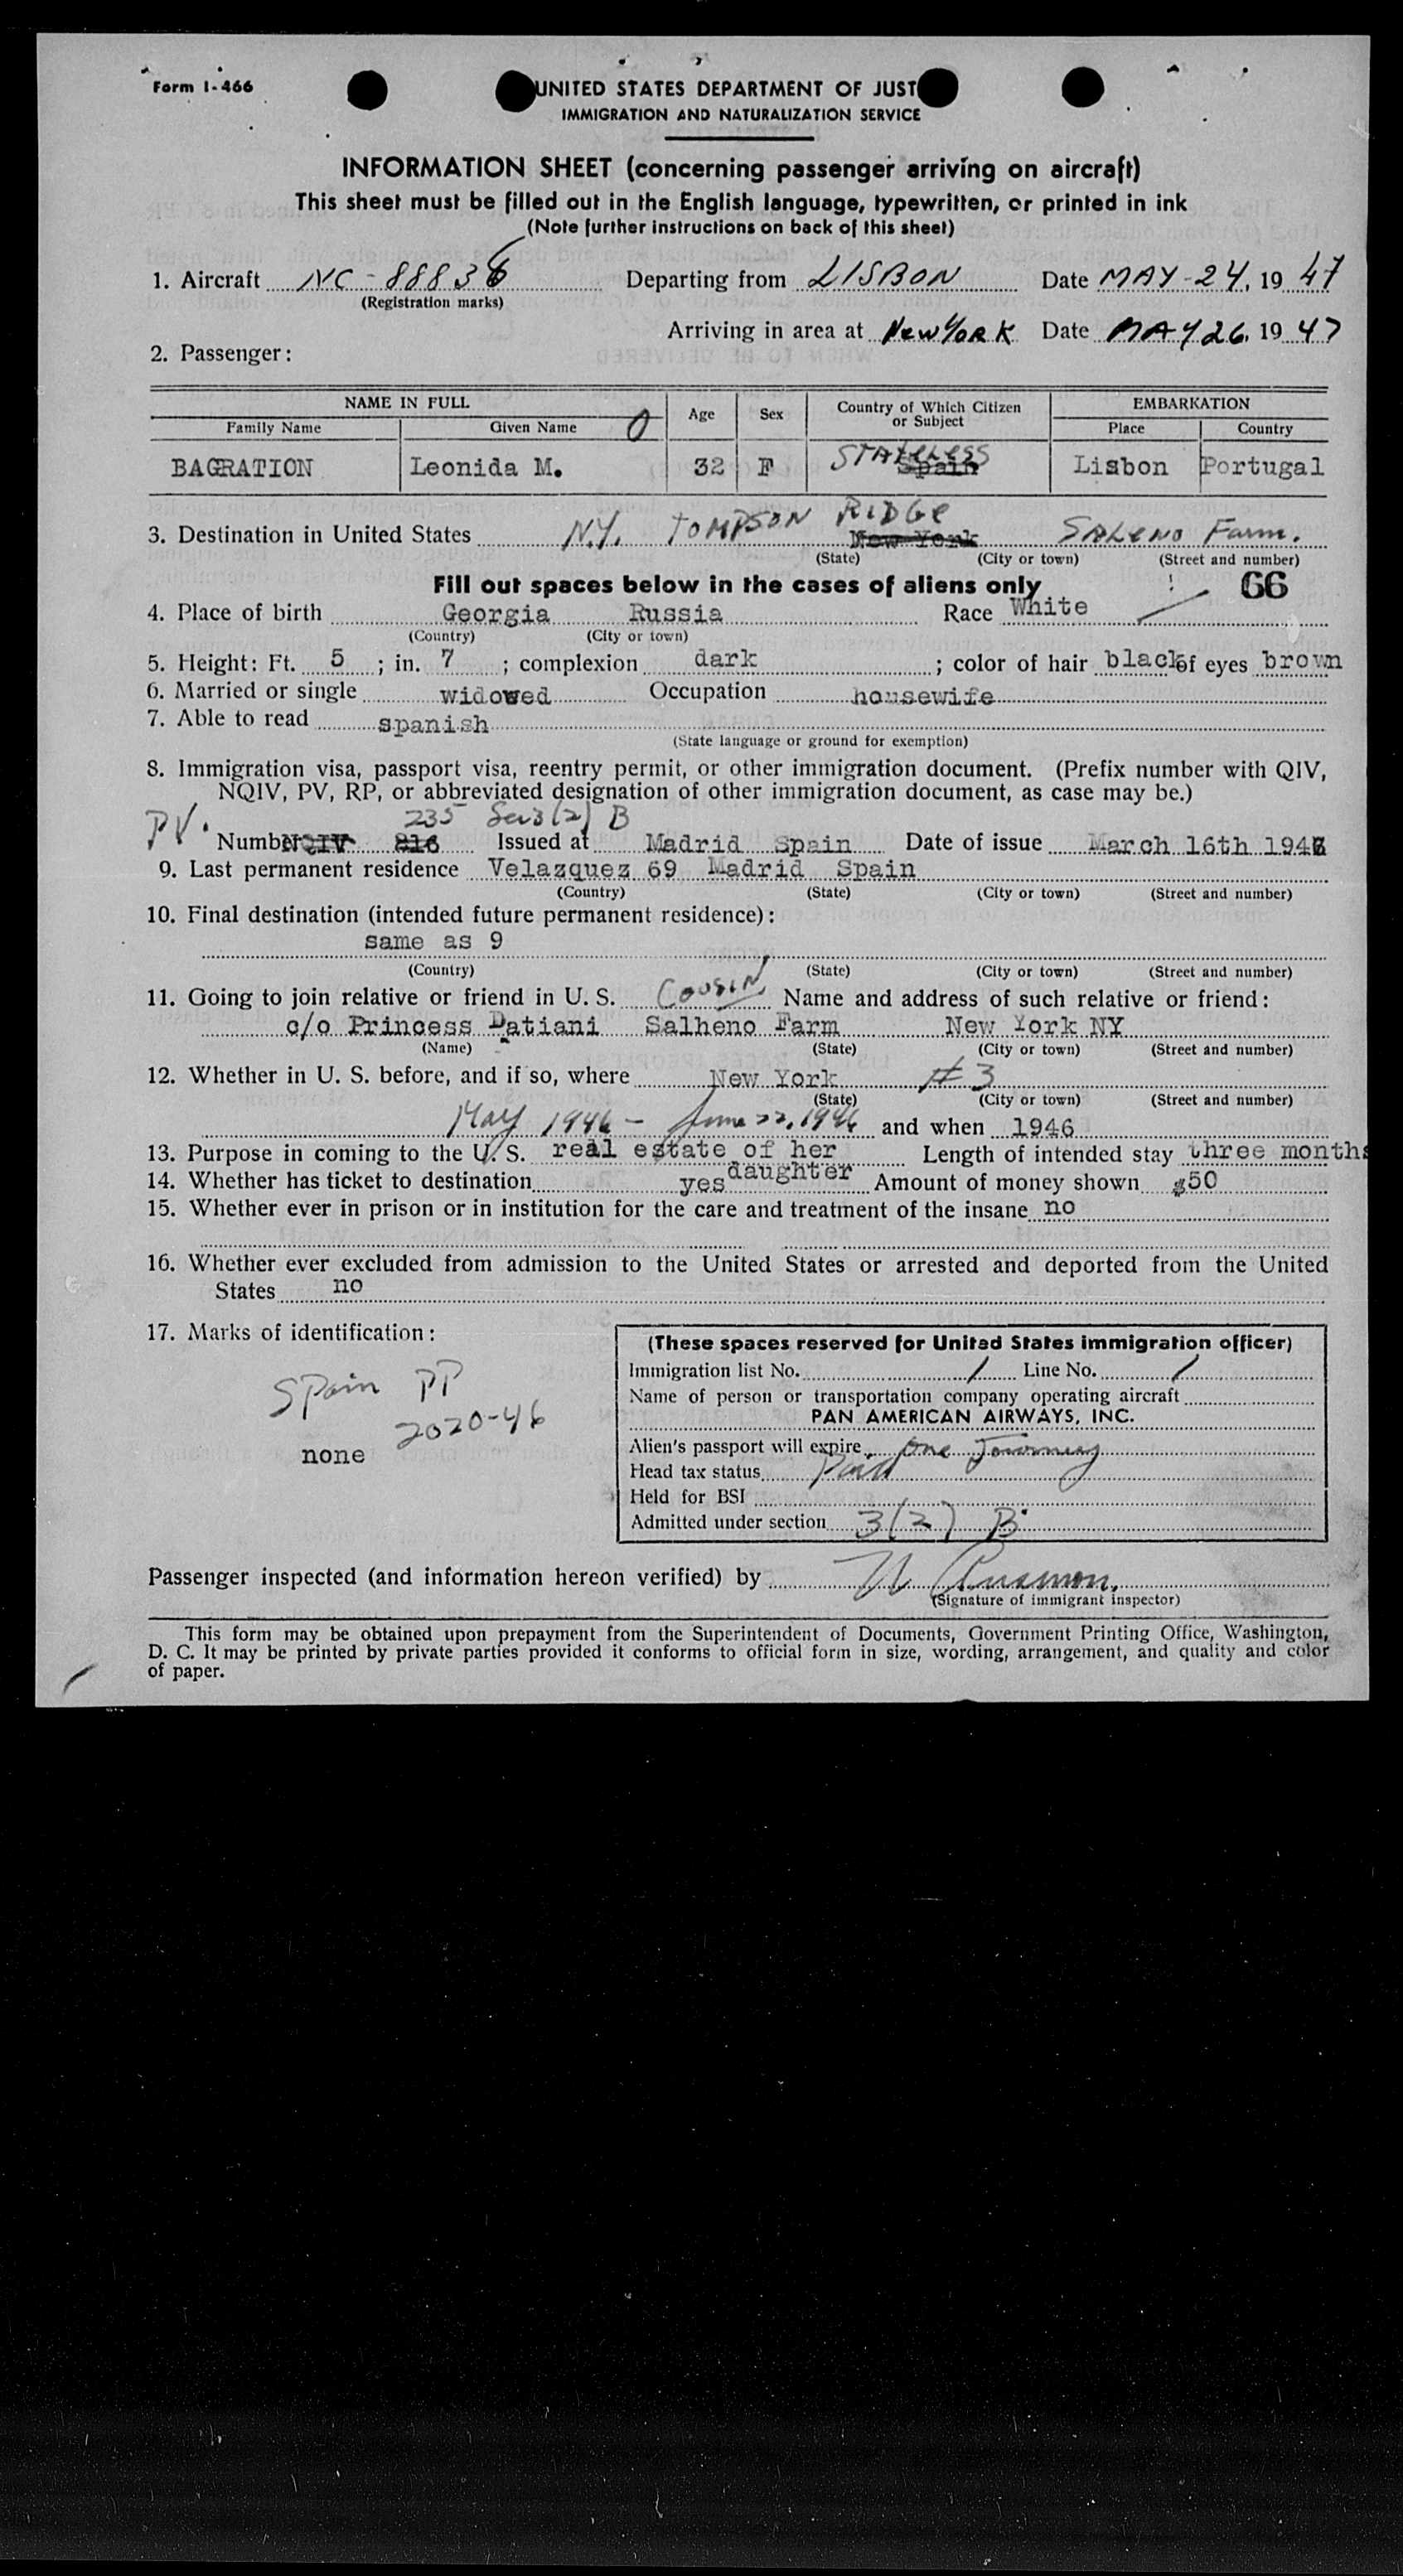 Form I-466
UNITED STATES DEPARTMENT OF JUST
IMMIGRATION AND NATURALIZATION SERVICE
INFORMATION SHEET (concerning passenger arriving on aircraft)
This sheet must be filled out in the English language, typewritten, or printed in ink
(Note further instructions on back of this sheet)
1. Aircraft NC-88836 Departing from LISBON Date MAY-24, 19 47
(Registration marks)
Arriving in area at New York Date MAY 26, 19 47
2. Passenger:
NAME IN FULL Age Sex Country of Which Citizen or Subject EMBARKATION
Family Name Given Name O Place Country
STATELESS
BAGRATION Leonida M. 32 F Spain Lisbon Portugal
3. Destination in United States N.Y. TOMPSON RIDGE New York SALENO Farm.
(State) (City or town) (Street and number)
Fill out spaces below in the cases of aliens only 66
4. Place of birth Georgia Russia Race White
(Country) (City or town)
5. Height: Ft. 5 ; in. 7 ; complexion dark ; color of hair black of eyes brown
6. Married or single widowed Occupation housewife
7. Able to read spanish
(State language or ground for exemption)
8. Immigration visa, passport visa, reentry permit, or other immigration document. (Prefix number with QIV,
NQIV, PV, RP, or abbreviated designation of other immigration document, as case may be.)
PV. 235 Sec 3(2) B
Number NQIV 816 Issued at Madrid Spain Date of issue March 16th 1947
9. Last permanent residence Velazquez 69 Madrid Spain
(Country) (State) (City or town) (Street and number)
10. Final destination (intended future permanent residence):
same as 9
(Country) (State) (City or town) (Street and number)
11. Going to join relative or friend in U. S. COUSIN Name and address of such relative or friend:
c/o Princess Datiani Salheno Farm New York NY
(Name) (State) (City or town) (Street and number)
12. Whether in U. S. before, and if so, where New York #3
(State) (City or town) (Street and number)
May 1946 - June 22, 1946 and when 1946
13. Purpose in coming to the U. S. real estate of her Length of intended stay three months
daughter
14. Whether has ticket to destination yes Amount of money shown $50
15. Whether ever in prison or in institution for the care and treatment of the insane no
16. Whether ever excluded from admission to the United States or arrested and deported from the United
States no
17. Marks of identification:
Spain PP
2020-46
none
(These spaces reserved for United States immigration officer)
Immigration list No. 1 Line No. 1
Name of person or transportation company operating aircraft
PAN AMERICAN AIRWAYS, INC.
Alien's passport will expire One Journey
Head tax status Paid
Held for BSI
Admitted under section 3(2) B
Passenger inspected (and information hereon verified) by
(Signature of immigrant inspector)
This form may be obtained upon prepayment from the Superintendent of Documents, Government Printing Office, Washington,
D. C. It may be printed by private parties provided it conforms to official form in size, wording, arrangement, and quality and color
of paper.